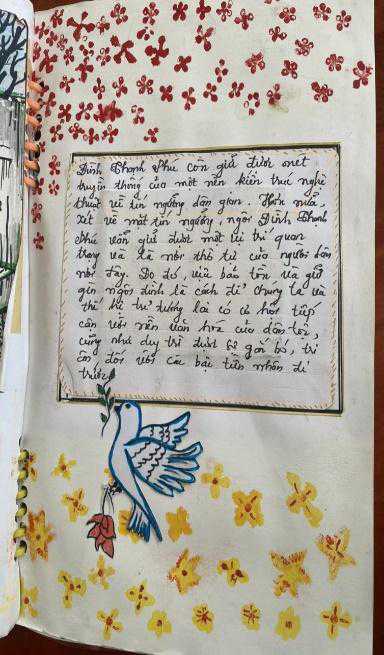 Đình Thanh Phú còn giữ được nét
truyền thống của một nền kiến trúc nghệ
thuật về tín ngưỡng dân gian. Hơn nữa,
xét về mặt tín ngưỡng, ngôi Đình Thanh
Phú vẫn giữ được một vị trí quan
trọng và là nơi thờ tự của người dân
nơi đây. Do đó, việc bảo tồn và giữ
gìn ngôi đình là cách để chúng ta và
thế hệ trẻ tương lai có cơ hội tiếp
cận với nền văn hóa của dân tộc,
cũng như duy trì được sự gắn bó, tri
ân đối với các bậc tiền nhân đi
trước.